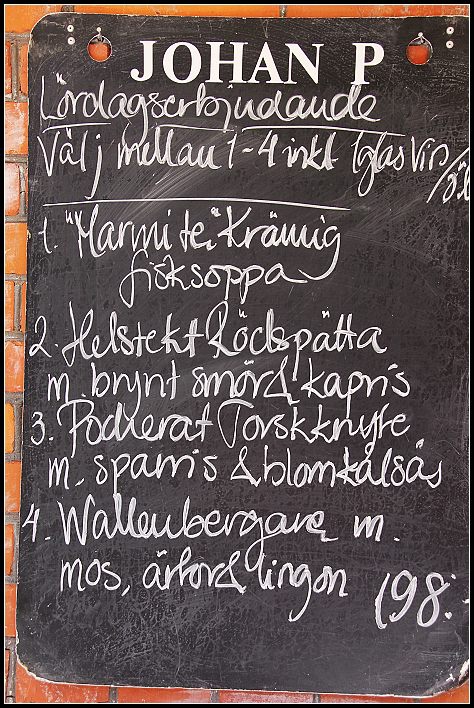 JOHAN P
Lördagserbjudande
Välj mellan 1-4 inkl 1glas Vin/öl
1. "Marmite" Krämig
fisksoppa
2. Helstekt Rödspätta
m. brynt smör & kapris
3. Pocherat Torskknyte
m. sparris & blomkålsås
4. Wallenbergare m.
mos, ärtor & lingon
198:-